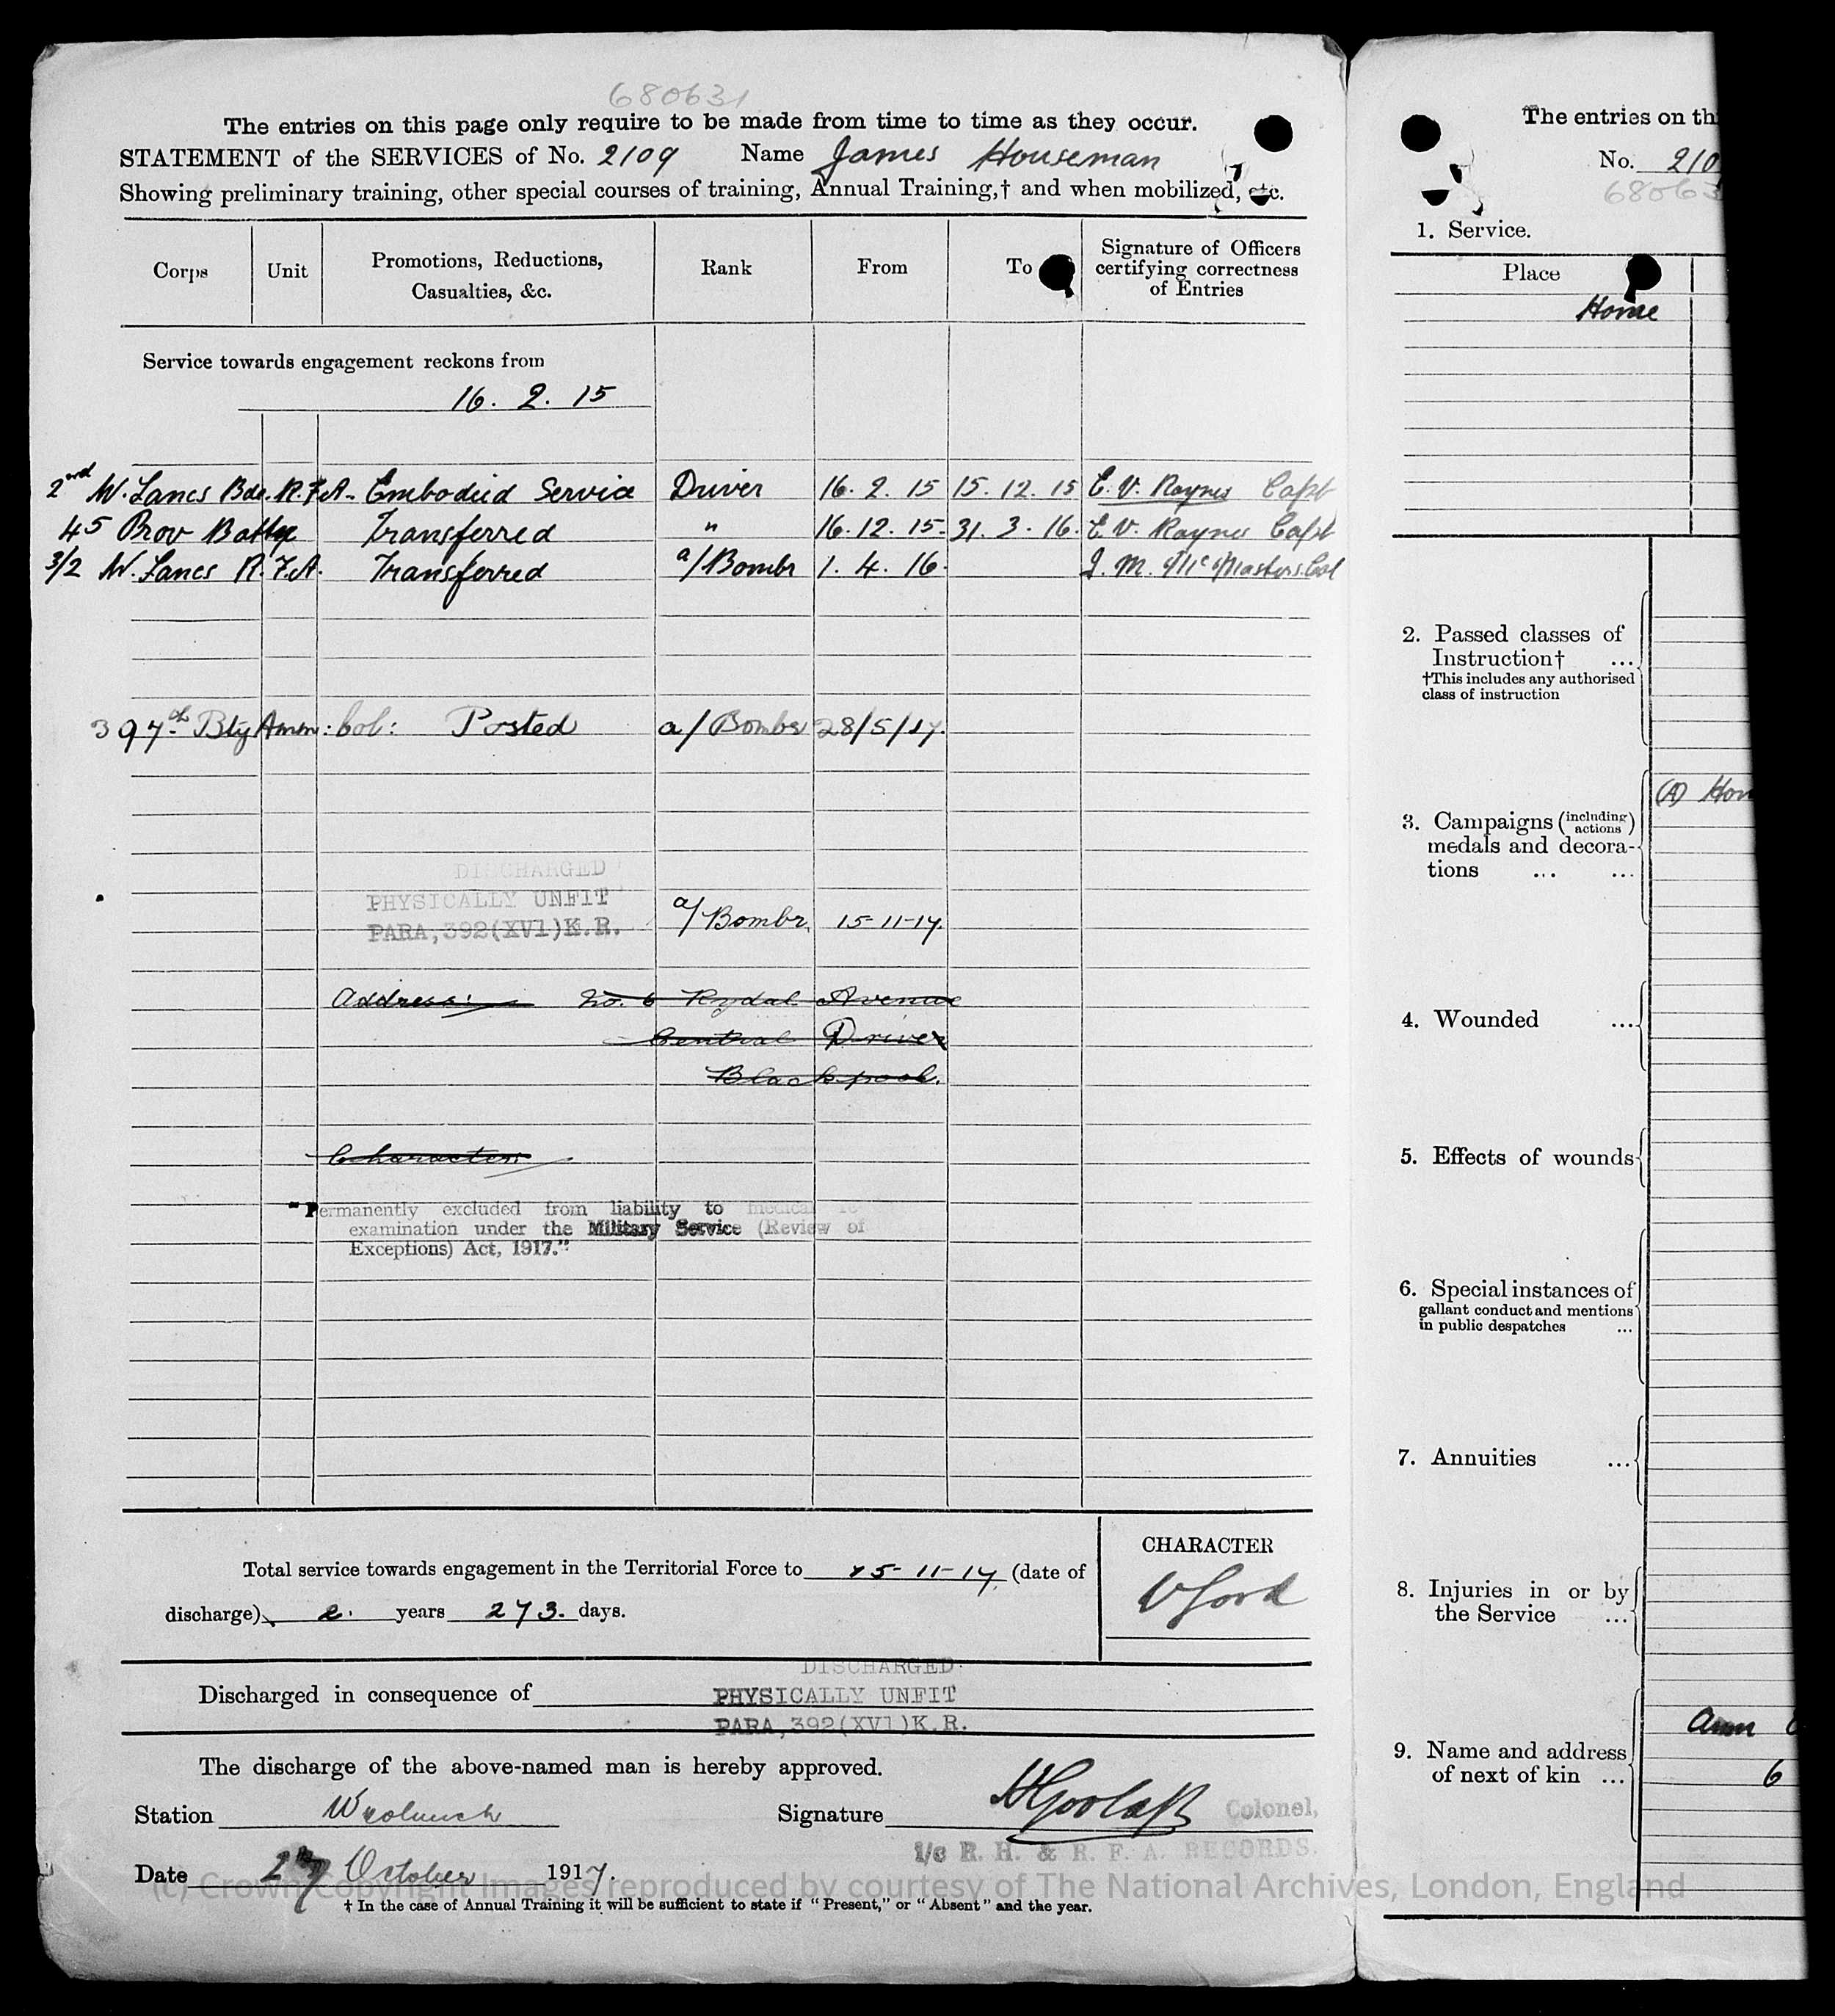 680631
The entries on this page only require to be made from time to time as they occur.
STATEMENT of the SERVICES of No. 2109 Name James Houseman
Showing preliminary training, other special courses of training, Annual Training,† and when mobilized, etc.
Corps Unit Promotions, Reductions, Casualties, &c. Rank From To Signature of Officers certifying correctness of Entries
Service towards engagement reckons from
16. 2. 15
2nd W. Lancs Bde. R.F.A. Embodied Service Driver 16. 2. 15 15. 12. 15 E. V. Raynes Capt
45 Prov Battery Transferred " 16. 12. 15 31. 3. 16. E. V. Raynes Capt
3/2 W. Lancs R.F.A. Transferred a/Bombr 1. 4. 16. J. M. McMasters Col
397th Bty Amm: Col: Posted a/Bombr 28/5/17.
DISCHARGED
PHYSICALLY UNFIT
PARA, 392(XVI)K.R.
a/Bombr. 15-11-17.
Address: No. 6 Rydal Avenue
Central Drive
Blackpool.
Character:
"Permanently excluded from liability to medical re
examination under the Military Service (Review of
Exceptions) Act, 1917."
Total service towards engagement in the Territorial Force to 15-11-17. (date of
discharge) 2. years 273. days.
CHARACTER
V Good
Discharged in consequence of
DISCHARGED
PHYSICALLY UNFIT
PARA, 392(XVI)K.R.
The discharge of the above-named man is hereby approved.
Station Woolwich Signature Colonel,
i/c R. H. & R. F. A. RECORDS.
Date October 1917.
(c) Crown Copyright Images reproduced by courtesy of The National Archives, London, England
† In the case of Annual Training it will be sufficient to state if "Present," or "Absent" and the year.
The entries on th
No. 210
68063
1. Service.
Place
Home
2. Passed classes of
Instruction† ...
†This includes any authorised
class of instruction
3. Campaigns (including actions)
medals and decora-
tions ... ...
(A) Hom
4. Wounded ...
5. Effects of wounds
6. Special instances of
gallant conduct and mentions
in public despatches ...
7. Annuities ...
8. Injuries in or by
the Service ...
9. Name and address
of next of kin ...
Ann
6